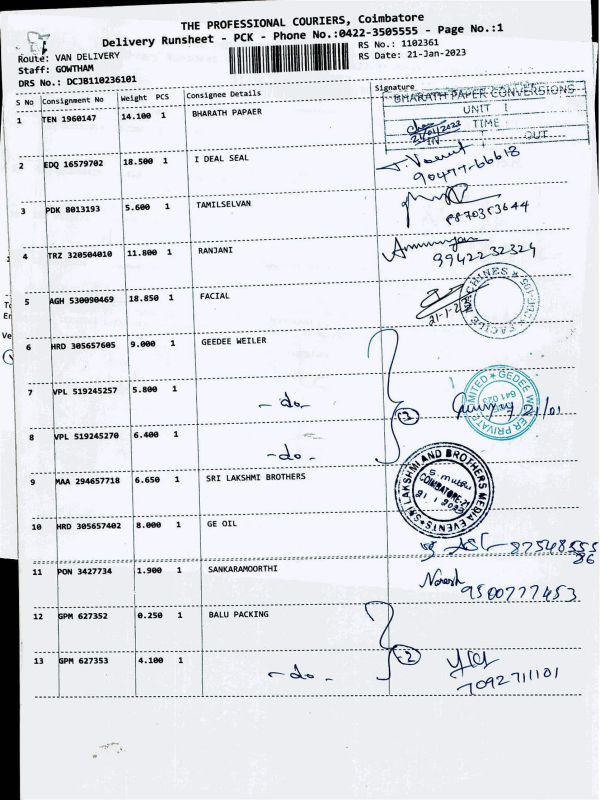 THE PROFESSIONAL COURIERS, Coimbatore
Delivery Runsheet - PCK - Phone No.:0422-3505555 - Page No.:1
Route: VAN DELIVERY
RS No.: 1102361
Staff: GOWTHAM
RS Date: 21-Jan-2023
DRS No.: DCJB110236101
S No Consignment No Weight PCS Consignee Details Signature
1 TEN 1960147 14.100 1 BHARATH PAPAER
BHARATH PAPER CONVERSIONS
UNIT I
TIME
IN OUT
2 EDQ 16579702 18.500 1 I DEAL SEAL
90477-66618
3 PDK 8013193 5.600 1 TAMILSELVAN
8870353644
4 TRZ 320504010 11.800 1 RANJANI
9942232324
5 AGH 530090469 18.850 1 FACIAL
6 HRD 305657605 9.000 1 GEEDEE WEILER
7 VPL 519245257 5.800 1 -do-
3 21/01
8 VPL 519245270 6.400 1 -do-
9 MAA 294657718 6.650 1 SRI LAKSHMI BROTHERS
SRI LAKSHMI AND BROTHERS MEDIA EVENTS
COIMBATORE
10 HRD 305657402 8.000 1 GE OIL
87548555
86
11 PON 3427734 1.900 1 SANKARAMOORTHI
Naresh
9500777453
12 GPM 627352 0.250 1 BALU PACKING
2
13 GPM 627353 4.100 1 -do-
7092711101